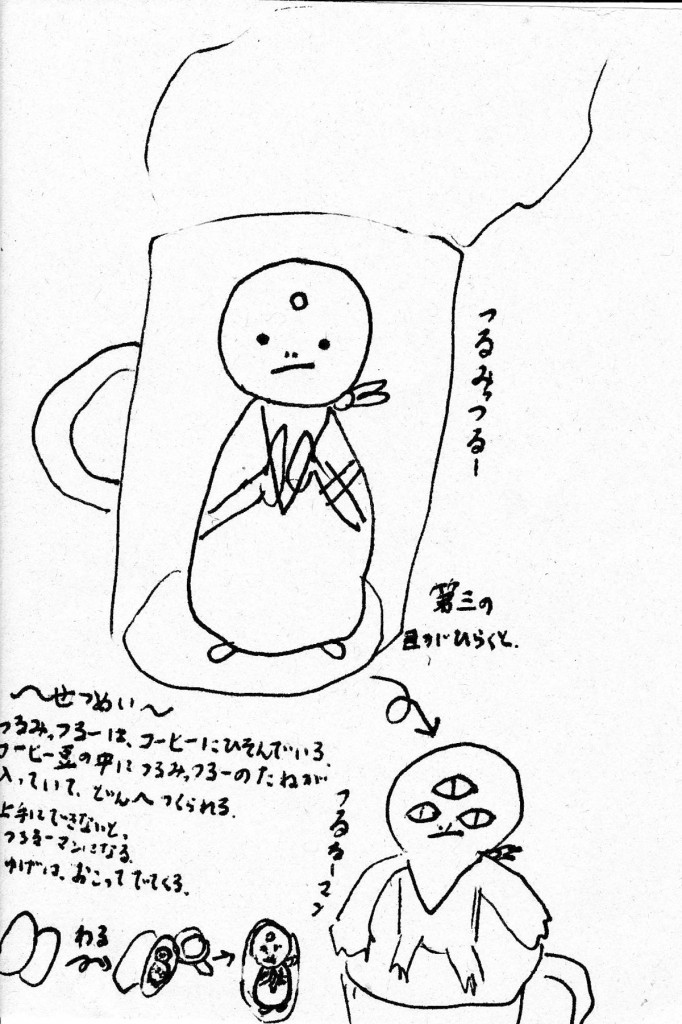 つるみっつるー
第三の
目がひらくと、
〜せつめい〜
つるみっつるーは、コーヒーにひそんでいる。
コーヒー豆の中につるみっつるーのたねが
入っていて、どんどんつくられる。
上手にできないと、
つるるーマンになる。
ゆげは、おこってでてくる。
つるるーマン
わる